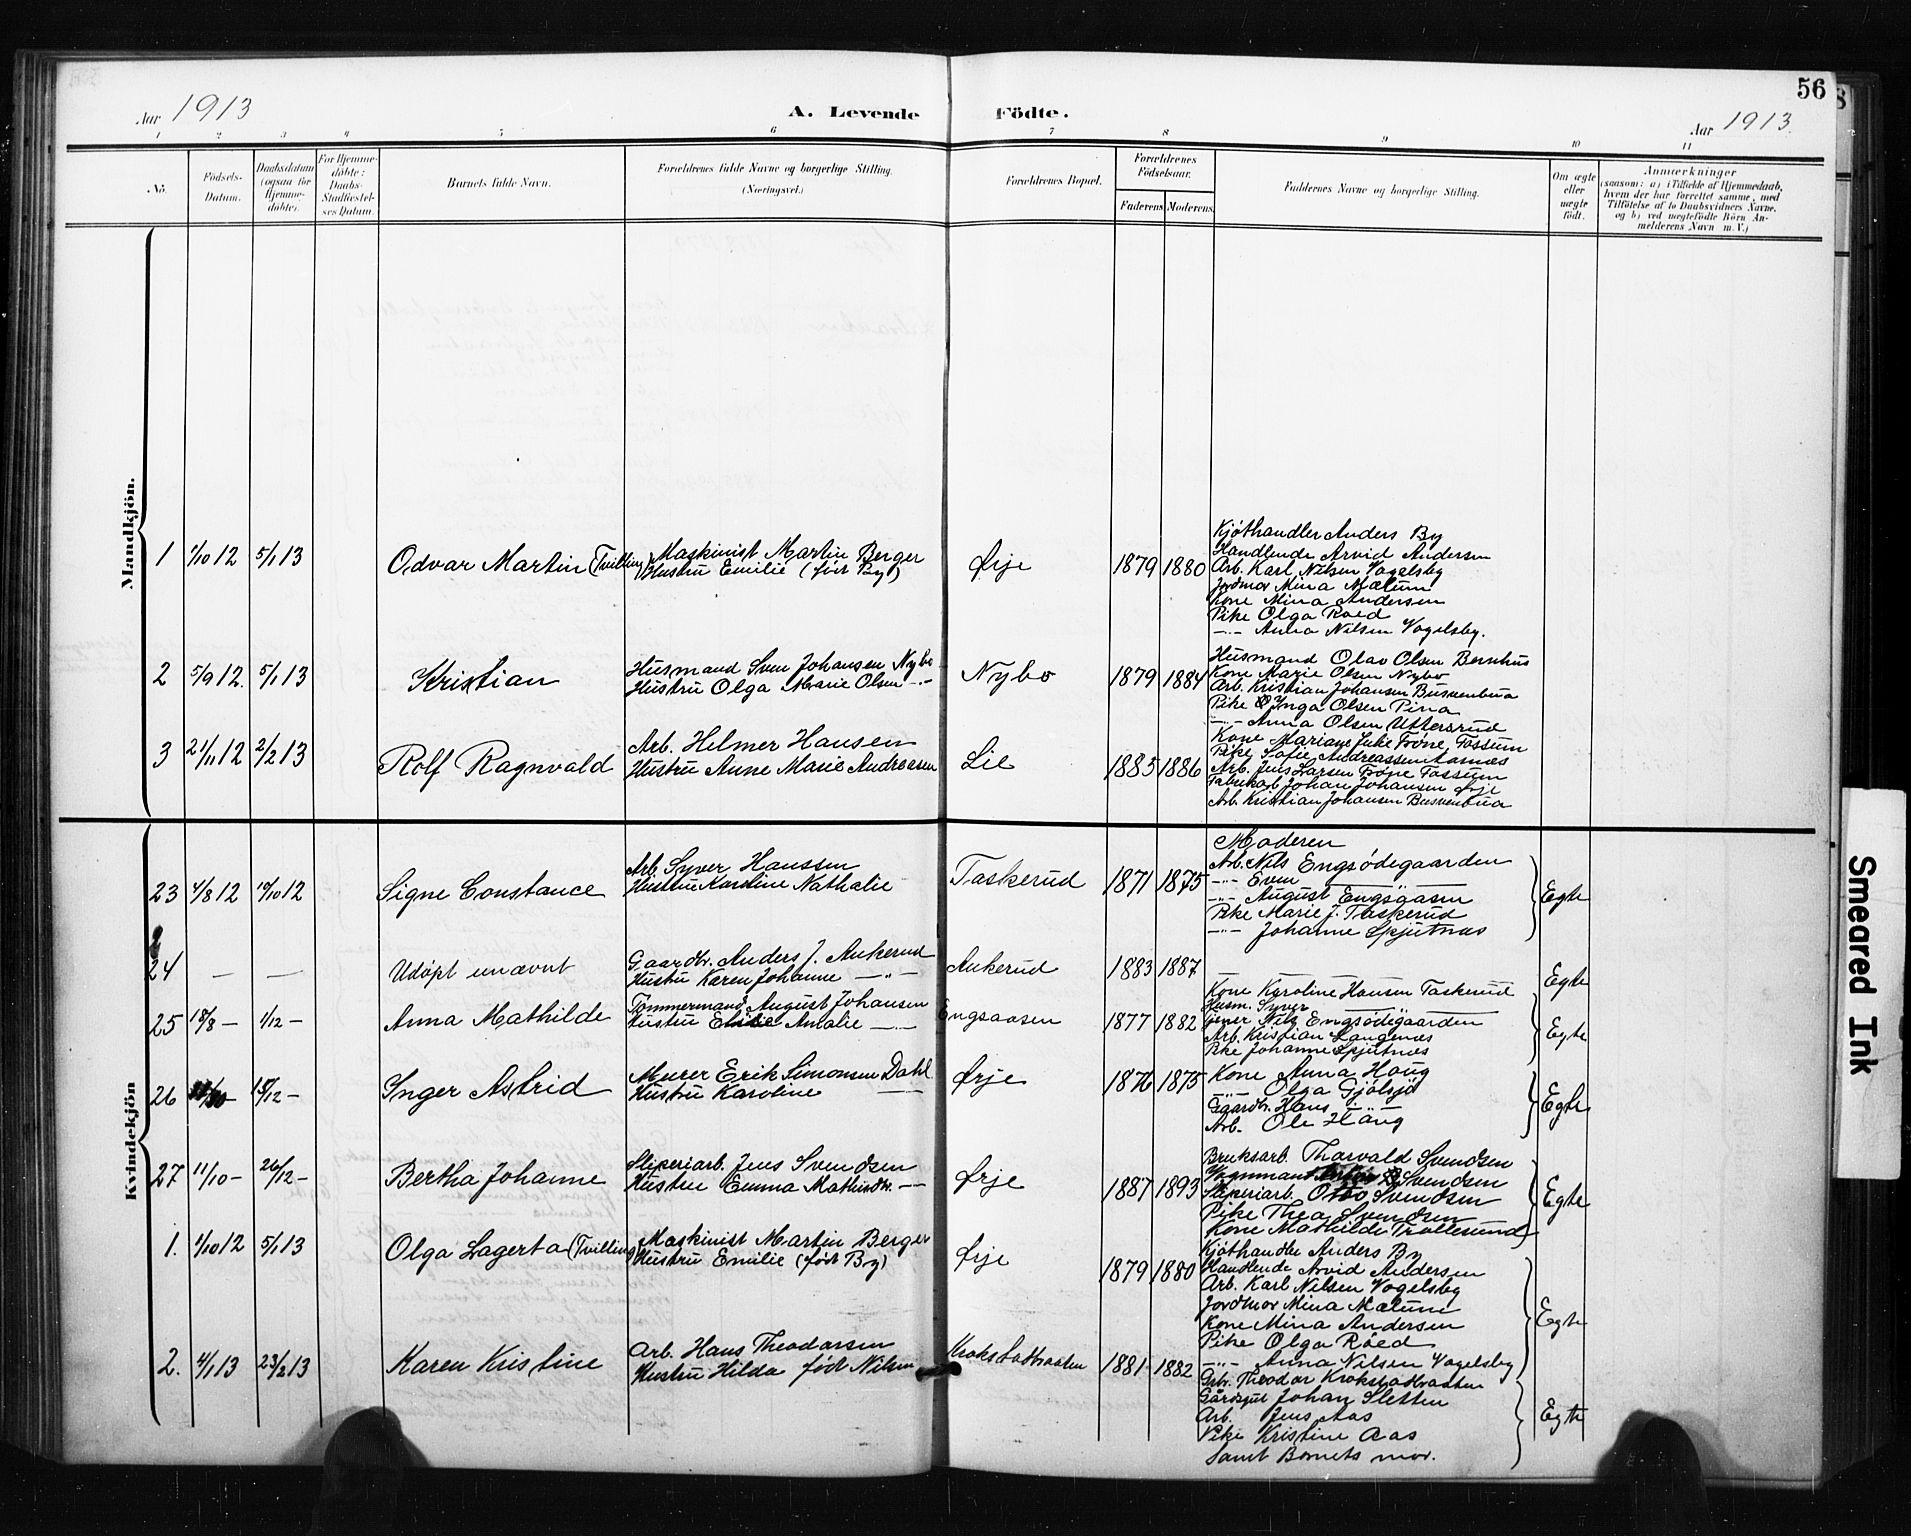 56
8
Aar 1913
A. Levende Födte.
Aar 1913.
1 2 3 4 5 6 7 8 9 10 11
No.
Födsels-
Datum.
Daabsdatum
(ogsaa for
Hjemme-
döbte).
For Hjemme-
döbte:
Daabs-
Stadfæstel-
ses Datum.
Barnets fulde Navn.
Forældrenes fulde Navne og borgerlige Stilling.
(Næringsvei.)
Forældrenes Bopæl.
Forældrenes
Födselsaar.
Faderens Moderens
Faddernes Navne og borgerlige Stilling.
Om ægte
eller
uægte
födt.
Anmærkninger
(saasom: a) i Tilfælde af Hjemmedaab,
hvem der har forrettet samme, med
Tilföielse af to Daabsvidners Navne,
og b) ved uægtefödte Börn An-
melderens Navn m. V.)
Mandkjön.
1 1/10 12 5/1 13 Odvar Martin (Tvilling)
Maskinist Martin Berger
Hustru Emilie (født By)
Ørje 1879 1880
Kjøthandler Anders By
Handlende Arvid Andersen
Arb. Karl Nilsen Vogelsby
Jordmor Mina Mælum
Kone Mina Andersen
Pike Olga Røed
—"— Anna Nilsen Vogelsby.
2 5/9 12. 5/1 13 Kristian
Husmand Sven Johansen Nybo
Hustru Olga Marie Olsen —"—
Nybo 1879 1884
Husmand Olav Olsen
Kone Marie Olsen Nybo
Arb. Kristian Johansen Busuenbua
Pike Inga Olsen Pina
—"— Anna Olsen
3 21/11 12 2/2 13 Rolf Ragnvald
Arb. Helmer Hansen
Hustru Anne Marie Andreasen
Lie 1885 1886
Kone Mariane Julie Frøne, Fossum
Pike Sofie Andreassen Aarnæs
Arb. Jens Larsen Frøne Fossum
Johan Johansen Ørje
Arb. Kristian Johansen Busuenbua
Kvindekjön
23 4/8 12 19/10 12 Signe Constance
Arb. Syver Hanssen
Hustru Karoline Nathalie
Taskerud 1871 1875
Moderen
Arb. Nils Engsødegaarden
—"— Even
—"— August Engsaasen
Pike Marie J. Taskerud
—"— Johanne Spjutnæs
Egte
24 — — Udøpt unævnt
Gaardbr. Anders J. Ankerud
Hustru Karen Johanne —"—
Ankerud 1883 1887
Egte
25 18/8 — 1/12 — Anna Mathilde
Tømmermand August Johansen
Hustru Amalie —
Engsaasen 1877 1882
Kone Karoline Hansen Taskerud
Husm. Syver
Nils Engsødegaarden
Arb. Kristian Langenæs
Pike Johanne Spjutnæs
Egte
26 /12 — Inger Astrid
Murer Erik Simonsen Dahl
Hustru Karoline —
Ørje 1876 1875
Kone Anna Haug
—"— Olga Gjølsjø
Gaardbr. Hans
Arb. Ole Haug
Egte
27 11/10 — 26/12 — Bertha Johanne
Sliperiarb. Jens Svendsen
Hustru Emma —
Ørje 1887 1893
Bruksarb. Thorvald Svendsen
Svendsen
Sliperiarb. Otto Svendsen
Pike Thea Svendsen
Kone Mathilde Trollesund
Egte
1. 1/10 12 5/1 13 Olga Lagerta (Tvilling)
Maskinist Martin Berger
Hustru Emilie (født By)
Ørje 1879 1880
Kjøthandler Anders By
Handlende Arvid Andersen
Arb. Karl Nilsen Vogelsby
Jordmor Mina Mælum
Kone Mina Andersen
Pike Olga Røed
—"— Anna Nilsen Vogelsby
Egte
2. 4/1 13 23/2 13 Karen Kristine
Arb. Hans Theodorsen
Hustru Hilda født Nilsen
Krokstadbraaten 1881 1882
Arb. Theodor Krokstadbraaten
Gårdsgut Johan Sletten
Arb. Jens Aas
Pike Kristine Aas
Samt Barnets mor.
Egte
Smeared Ink